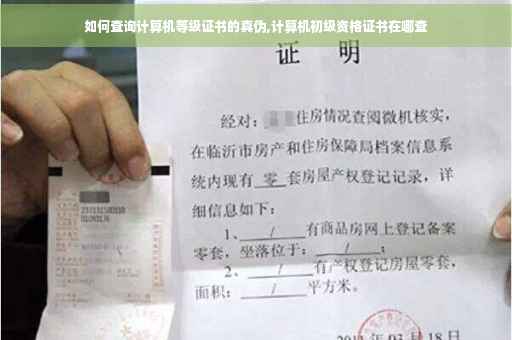 如何查询计算机等级证书的真伪,计算机初级资格证书在哪查
证 明
经对: 住房情况查阅微机核实,
在临沂市房产和住房保障局档案信息系
统内现有 零 套房屋产权登记记录, 详
细信息如下:
1、 / 有商品房网上登记备案
零套, 坐落位于: / ;
2、 / 有产权登记房屋零套,
面积: / 平方米。
月 18 日